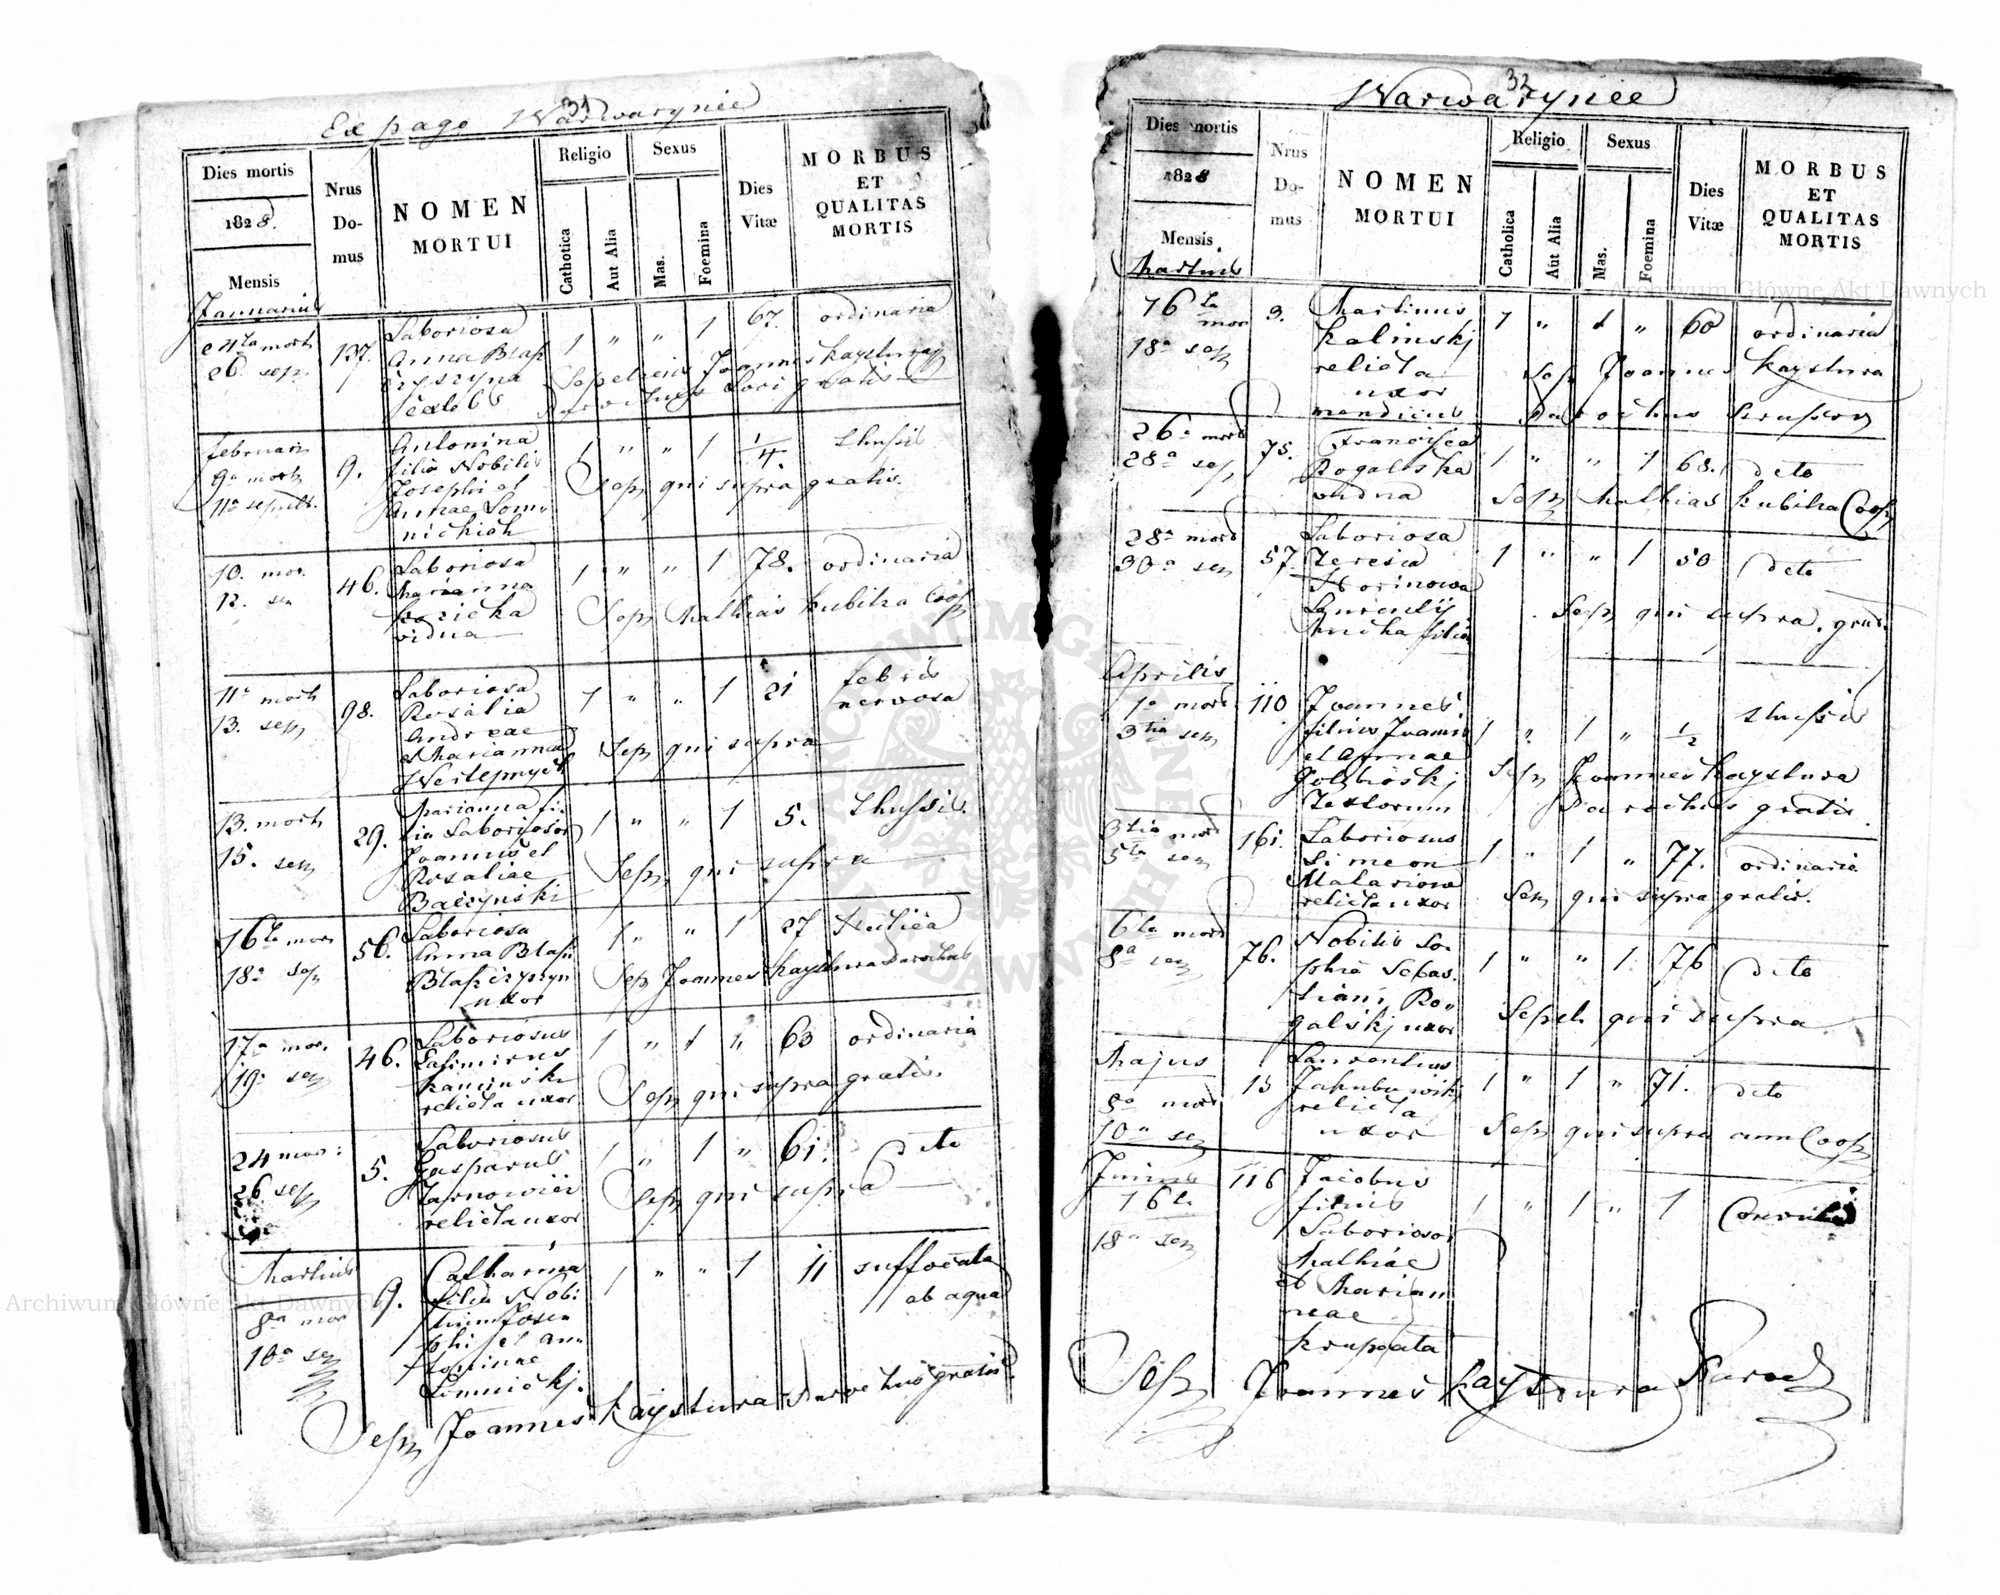 31
Ex pago Warwarynce
Dies mortis
1828.
Mensis
Nrus
Do-
mus
NOMEN
MORTUI
Religio
Catholica
Aut Alia
Sexus
Mas.
Foemina
Dies
Vitæ
MORBUS
ET
QUALITAS
MORTIS
Januarius
24ta mort
26. sep.
137.
Laboriosa
Anna Błaż
czyszyna
1 " " 1 67. ordinaria
Sepelivit Joannes Kaystura
Parochus Loci gratis
Februarii
9a mort
11a sepult.
9.
Antonina
filia Nobilis
Josephi et
Annae Łom
nickich
1 " " 1 1/4. thussis
Sep. qui supra gratis.
10. mor.
12. se
46.
Laboriosa
Marianna
Kozicka
vidua
1 " " 1 78. ordinaria
Sep. Mathias Kubitza Coop
11a mort
13. sep
98.
Laboriosa
Rosalia
Andreae
et Mariannae
1 " " 1 21 febris
nervosa
Sep qui supra
13. mort
15. sep
29.
Marianna fi-
lia Laboriosor
Joannis et
Rosaliae
Baczynski
1 " " 1 5. thussis.
Sep. qui supra
16ta mor
18a sep
56.
Laboriosa
Anna Błaż
Błażczyszyn
uxor
1 " " 1 27
Sep Joannes Kaystura Parochus
17a mor.
19a sep
46.
Laboriosus
Casimirus
Kaminski
relicta uxor
1 " 1 " 63 ordinaria
Sep qui supra gratis.
24 mor:
26 sep
5.
Laboriosus
Gasparus
Tarnowicz
relicta uxor
1 " 1 " 61. deto
Sep qui supra
Martius
8a mor
10a sep
9.
Catharina
filia Nobi
lium Jose
phi et An
toninae
Łomnickj.
1 " " 1 11 suffocata
ab aqua
Sep Joannes Kaystura Parochus gratis.
32
Warwarynce
Dies mortis
1828
Mensis
Martius
Nrus
Do-
mus
NOMEN
MORTUI
Religio
Catholica
Aut Alia
Sexus
Mas.
Foemina
Dies
Vitæ
MORBUS
ET
QUALITAS
MORTIS
16ta
mor
18a sep
3.
Martinus
Kalinskj
relicta
uxor
mendicus
1 " 1 " 60 ordinaria
Sep Joannes Kaystura
Parochus
26a mort
28a sep
75.
Francisca
Rogalska
vidua
1 " " 1 68. deto
Sep Mathias Kubitza Coop
28a mort
30a sep
57.
Laboriosa
Teresia
Laurentij
filia
1 " " 1 50 deto
Sep qui supra. grat.
Aprilis
1a mort
3tia sep
110
Joannes
filius Joannis
et Annae
Textorum
1 " 1 " 1/2 thussis
Sep Joannes Kaystura
Parochus gratis.
3tia mort
5ta sep
161.
Laboriosus
Simeon
relicta uxor
1 " 1 " 77. ordinaria
Sep qui supra gratis.
6ta mort
8a sep
76.
Nobilis So-
phia Sebas-
tiani Ro-
galskj uxor
1 " " 1 76 deto
Sepel. qui supra
Majus
8a mort
10a sep
15
Laurentius
Jakubowskj
relicta
uxor
1 " 1 " 71. deto
Sep qui supra cum Coop
Junius
16ta
18a sep
116
Jacobus
filius
Laborioso
Mathiae
et Marian
neae
Krupata
1 " 1 " 1
Sep Joannes Kaystura Paroch
Archiwum Główne Akt Dawnych
Archiwum Główne Akt Dawnych
ARCHIWUM GŁÓWNE AKT DAWNYCH